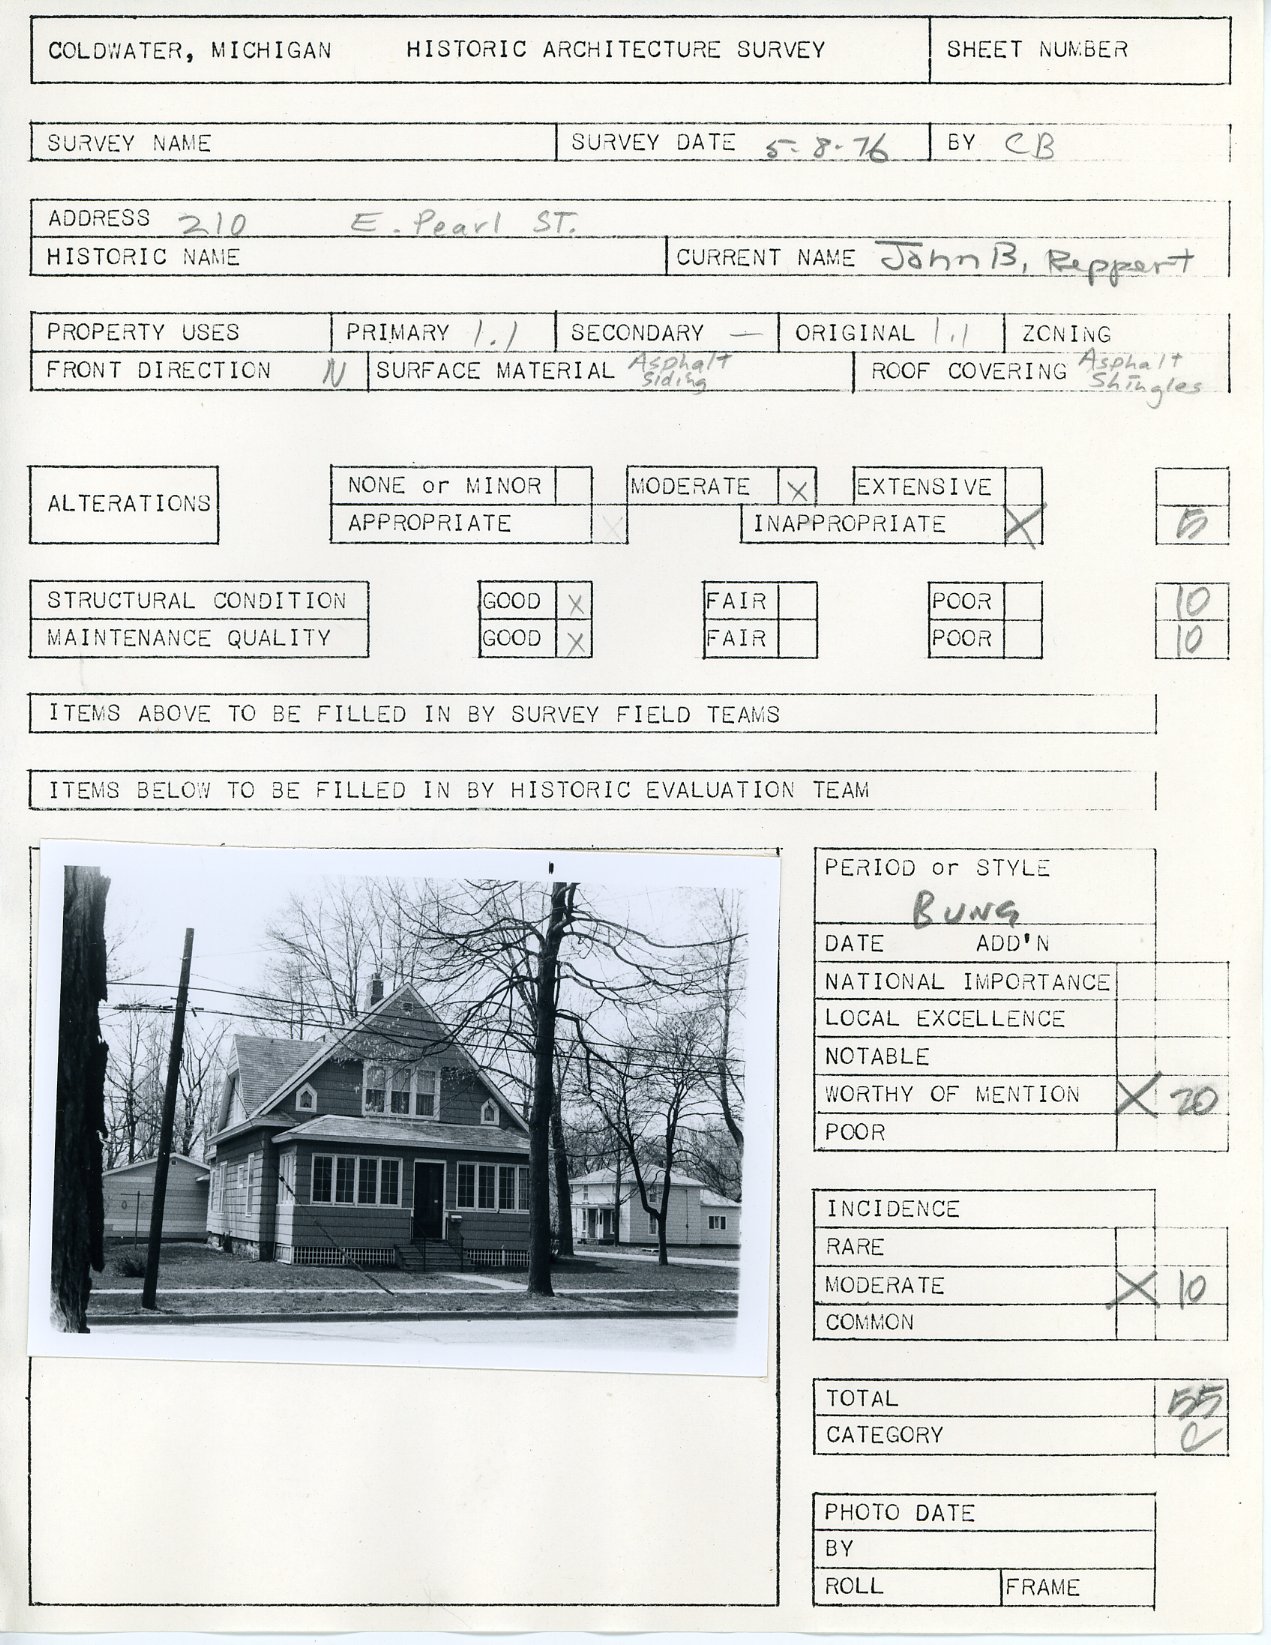 COLDWATER, MICHIGAN HISTORIC ARCHITECTURE SURVEY SHEET NUMBER
SURVEY NAME SURVEY DATE 5-8-76 BY CB
ADDRESS 210 E. Pearl ST.
HISTORIC NAME CURRENT NAME John B. Reppert
PROPERTY USES PRIMARY 1.1 SECONDARY — ORIGINAL 1.1 ZONING
FRONT DIRECTION N SURFACE MATERIAL Asphalt Siding ROOF COVERING Asphalt Shingles
ALTERATIONS NONE or MINOR MODERATE X EXTENSIVE
APPROPRIATE X INAPPROPRIATE X 5
STRUCTURAL CONDITION GOOD X FAIR POOR 10
MAINTENANCE QUALITY GOOD X FAIR POOR 10
ITEMS ABOVE TO BE FILLED IN BY SURVEY FIELD TEAMS
ITEMS BELOW TO BE FILLED IN BY HISTORIC EVALUATION TEAM
PERIOD or STYLE
BUNG
DATE ADD'N
NATIONAL IMPORTANCE
LOCAL EXCELLENCE
NOTABLE
WORTHY OF MENTION X 20
POOR
INCIDENCE
RARE
MODERATE X 10
COMMON
TOTAL 55
CATEGORY C
PHOTO DATE
BY
ROLL FRAME